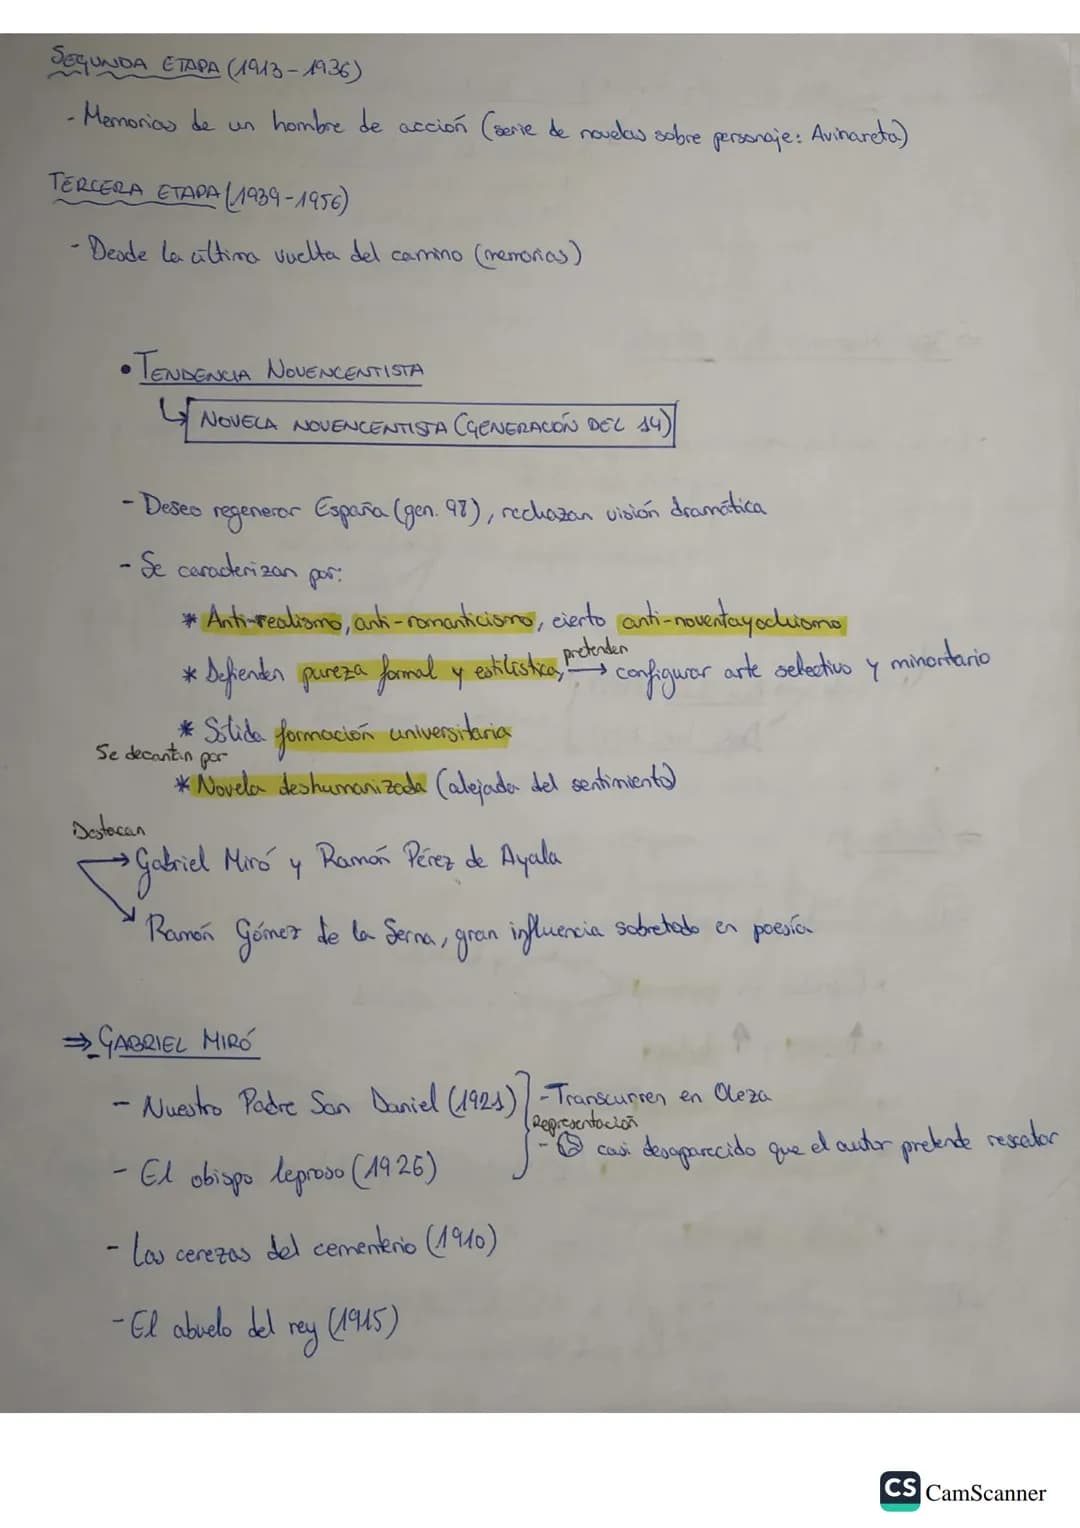 SEGUNDA ETAPA (1913-1936)
- Memorias de un hombre de acción (serie de novelas sobre personaje: Avinareta)
TERCERA ETAPA (1939-1956)
- Desde la última vuelta del camino (memorias)
• TENDENCIA NOVENCENTISTA
↳ NOVELA NOVENCENTISTA (GENERACIÓN DEL 14)
- Deseo regenerar España (gen. 98), rechazan visión dramática
- Se caracterizan por:
* Anti-realismo, anti-romanticismo, cierto anti-noventayochismo
* Defienden pureza formal y estilística, pretenden → configurar arte selectivo y minoritario
* Sólida formación universitaria
Se decantan por
* Novela deshumanizada (alejada del sentimiento)
Destacan
→ Gabriel Miró y Ramón Pérez de Ayala
Ramón Gómez de la Serna, gran influencia sobretodo en poesía
⇒ GABRIEL MIRÓ
- Nuestro Padre San Daniel (1921) - Transcurren en Oleza
Representación
- casi desaparecido que el autor pretende rescatar
- El obispo leproso (1926)
- Las cerezas del cementerio (1910)
- El abuelo del rey (1915)
CS CamScanner